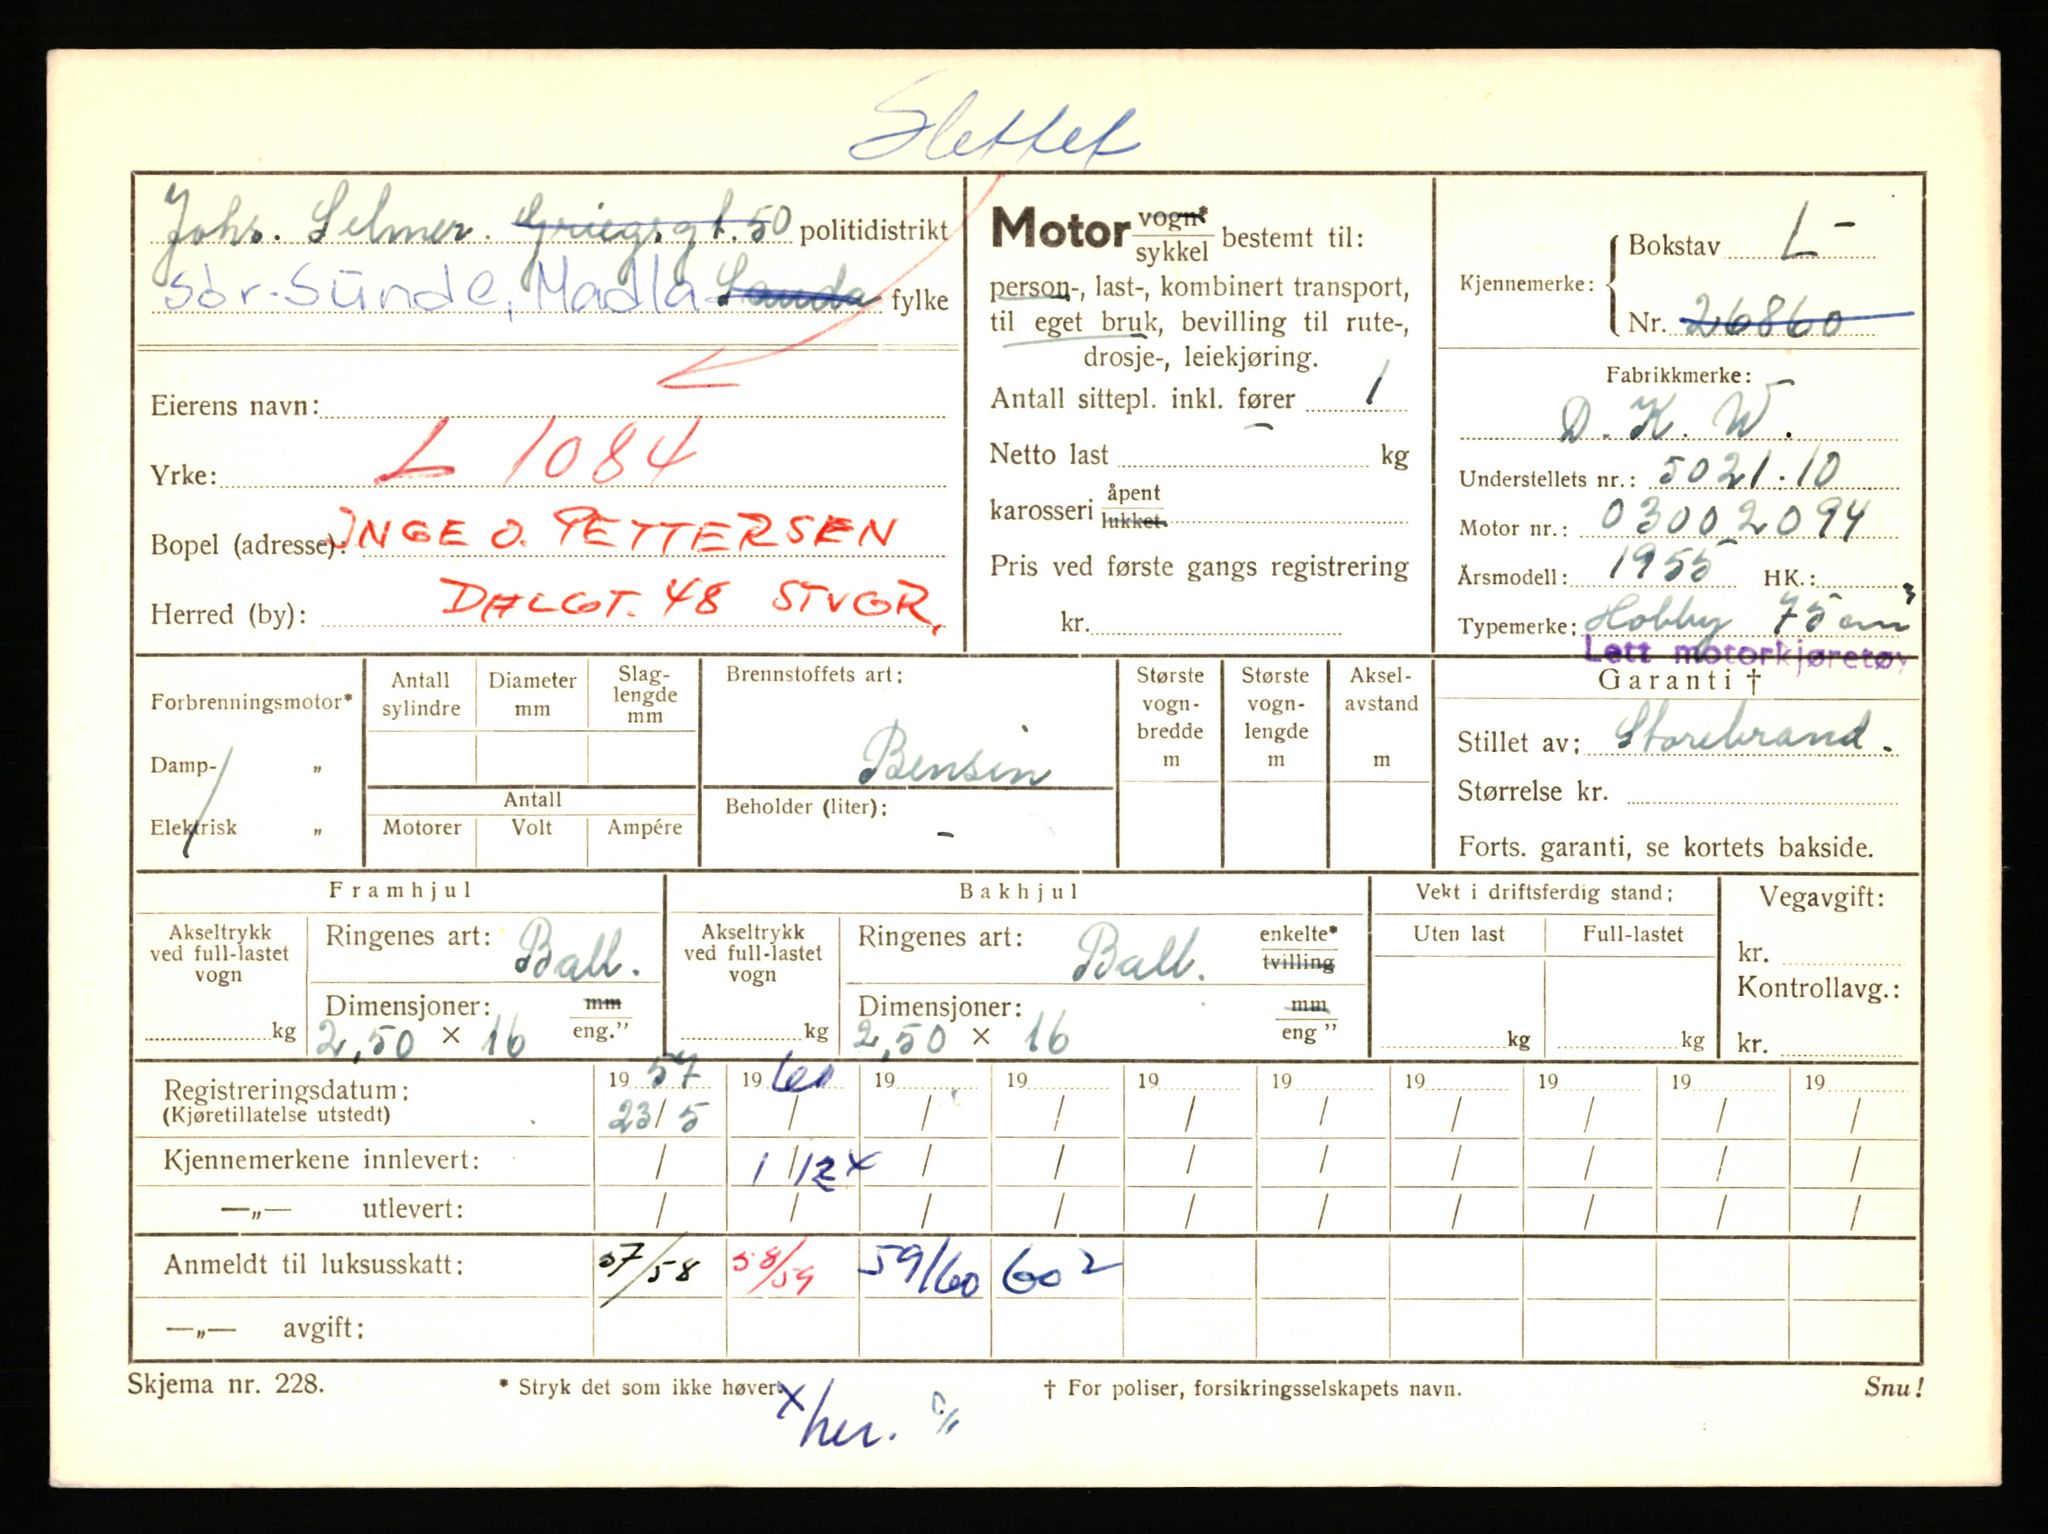 Slettet
Johs. Selmer. Griegsgt. 50 politidistrikt
Sør-Sunde, Madla Sauda fylke
Eierens navn:
L 1084
Yrke:
Bopel (adresse): INGE O. PETTERSEN
Herred (by): DALGT. 48 STVGR.
Motor vogn* sykkel bestemt til:
person-, last-, kombinert transport,
til eget bruk, bevilling til rute-,
drosje-, leiekjøring.
Antall sittepl. inkl. fører 1
Netto last - kg
karosseri åpent lukket
Pris ved første gangs registrering
kr.
Kjennemerke: Bokstav L-
Nr. 26860
Fabrikkmerke:
D. K. W.
Understellets nr.: 5021.10
Motor nr.: 03002094
Årsmodell: 1955 HK.:
Typemerke: Hobby 75 cm³
Lett motorkjøretøy
Forbrenningsmotor*
Damp- „
Elektrisk „
Antall sylindre
Diameter mm
Slag-lengde mm
Antall
Motorer Volt Ampére
Brennstoffets art:
Bensin
Beholder (liter):
-
Største vogn-bredde m
Største vogn-lengde m
Aksel-avstand m
Garanti †
Stillet av: Storebrand.
Størrelse kr.
Forts. garanti, se kortets bakside.
Framhjul
Akseltrykk ved full-lastet vogn
kg
Ringenes art: Ball.
Dimensjoner: mm eng."
2,50 × 16
Bakhjul
Akseltrykk ved full-lastet vogn
kg
Ringenes art: Ball. enkelte* tvilling
Dimensjoner: mm eng "
2,50 × 16
Vekt i driftsferdig stand:
Uten last Full-lastet
kg kg
Vegavgift:
kr.
Kontrollavg.:
kr.
Registreringsdatum: 19 57 19 60 19 19 19 19 19 19 19 19
(Kjøretillatelse utstedt) 23/5 / / / / / / / / /
Kjennemerkene innlevert: / 1/12 x / / / / / / / /
—„— utlevert: / / / / / / / / / /
Anmeldt til luksusskatt: 57/58 58/59 59/60 60 2
—„— avgift:
Skjema nr. 228. * Stryk det som ikke høver. † For poliser, forsikringsselskapets navn. Snu!
x her.